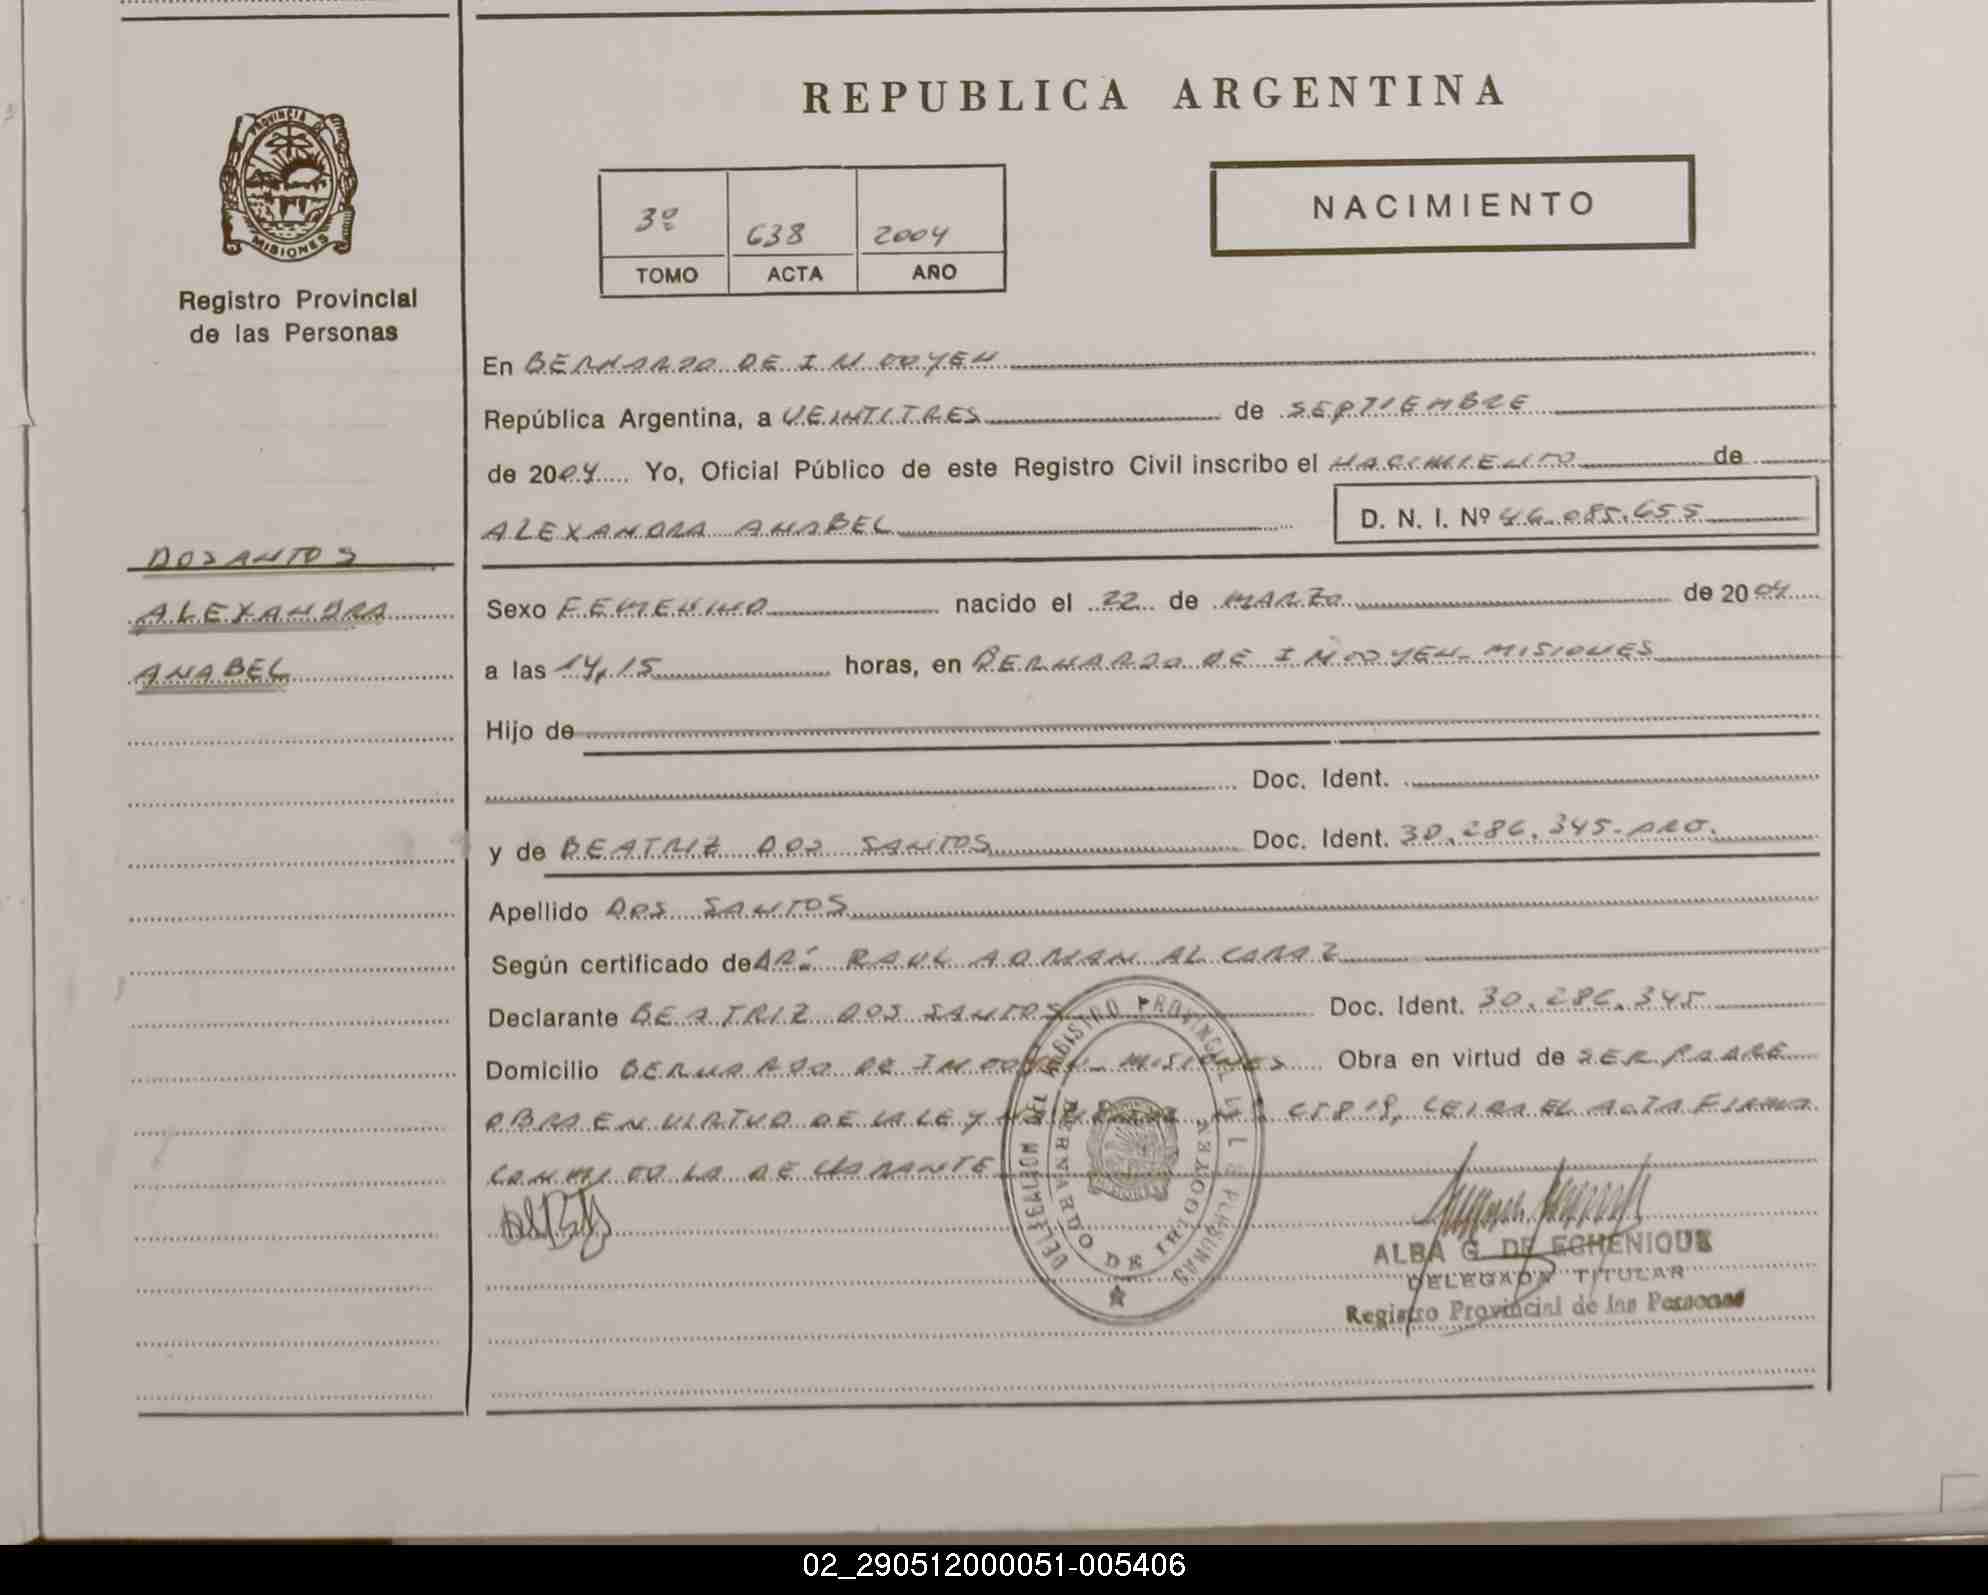 REPUBLICA ARGENTINA
PROVINCIA DE
MISIONES
Registro Provincial
de las Personas
3º 638 2004
TOMO ACTA AÑO
NACIMIENTO
En BERNARDO DE IRIGOYEN
República Argentina, a VEINTITRES de SEPTIEMBRE
de 2004 Yo, Oficial Público de este Registro Civil inscribo el NACIMIENTO de
ALEXANDRA ANABEL D. N. I. Nº 46.085.655
DOS ANTOS
ALEXANDRA
ANABEL
Sexo FEMENINO nacido el 22 de MARZO de 2004
a las 14,15 horas, en BERNARDO DE IRIGOYEN - MISIONES
Hijo de
Doc. Ident.
y de BEATRIZ DOS SANTOS Doc. Ident. 30.286.345-ARG.
Apellido DOS SANTOS
Según certificado de DR: RAUL ADRIAN ALCARAZ
Declarante BEATRIZ DOS SANTOS Doc. Ident. 30.286.345
Domicilio BERNARDO DE IRIGOYEN - MISIONES Obra en virtud de SER MADRE
OBRA EN VIRTUD DE LA LEY LEIDA EL ACTA FIRMA
CONMIGO LA DECLARANTE
REGISTRO PROVINCIAL DE LAS PERSONAS
BERNARDO DE IRIGOYEN
ALBA G. DE ECHENIQUE
DELEGADA TITULAR
Registro Provincial de las Personas
02_290512000051-005406